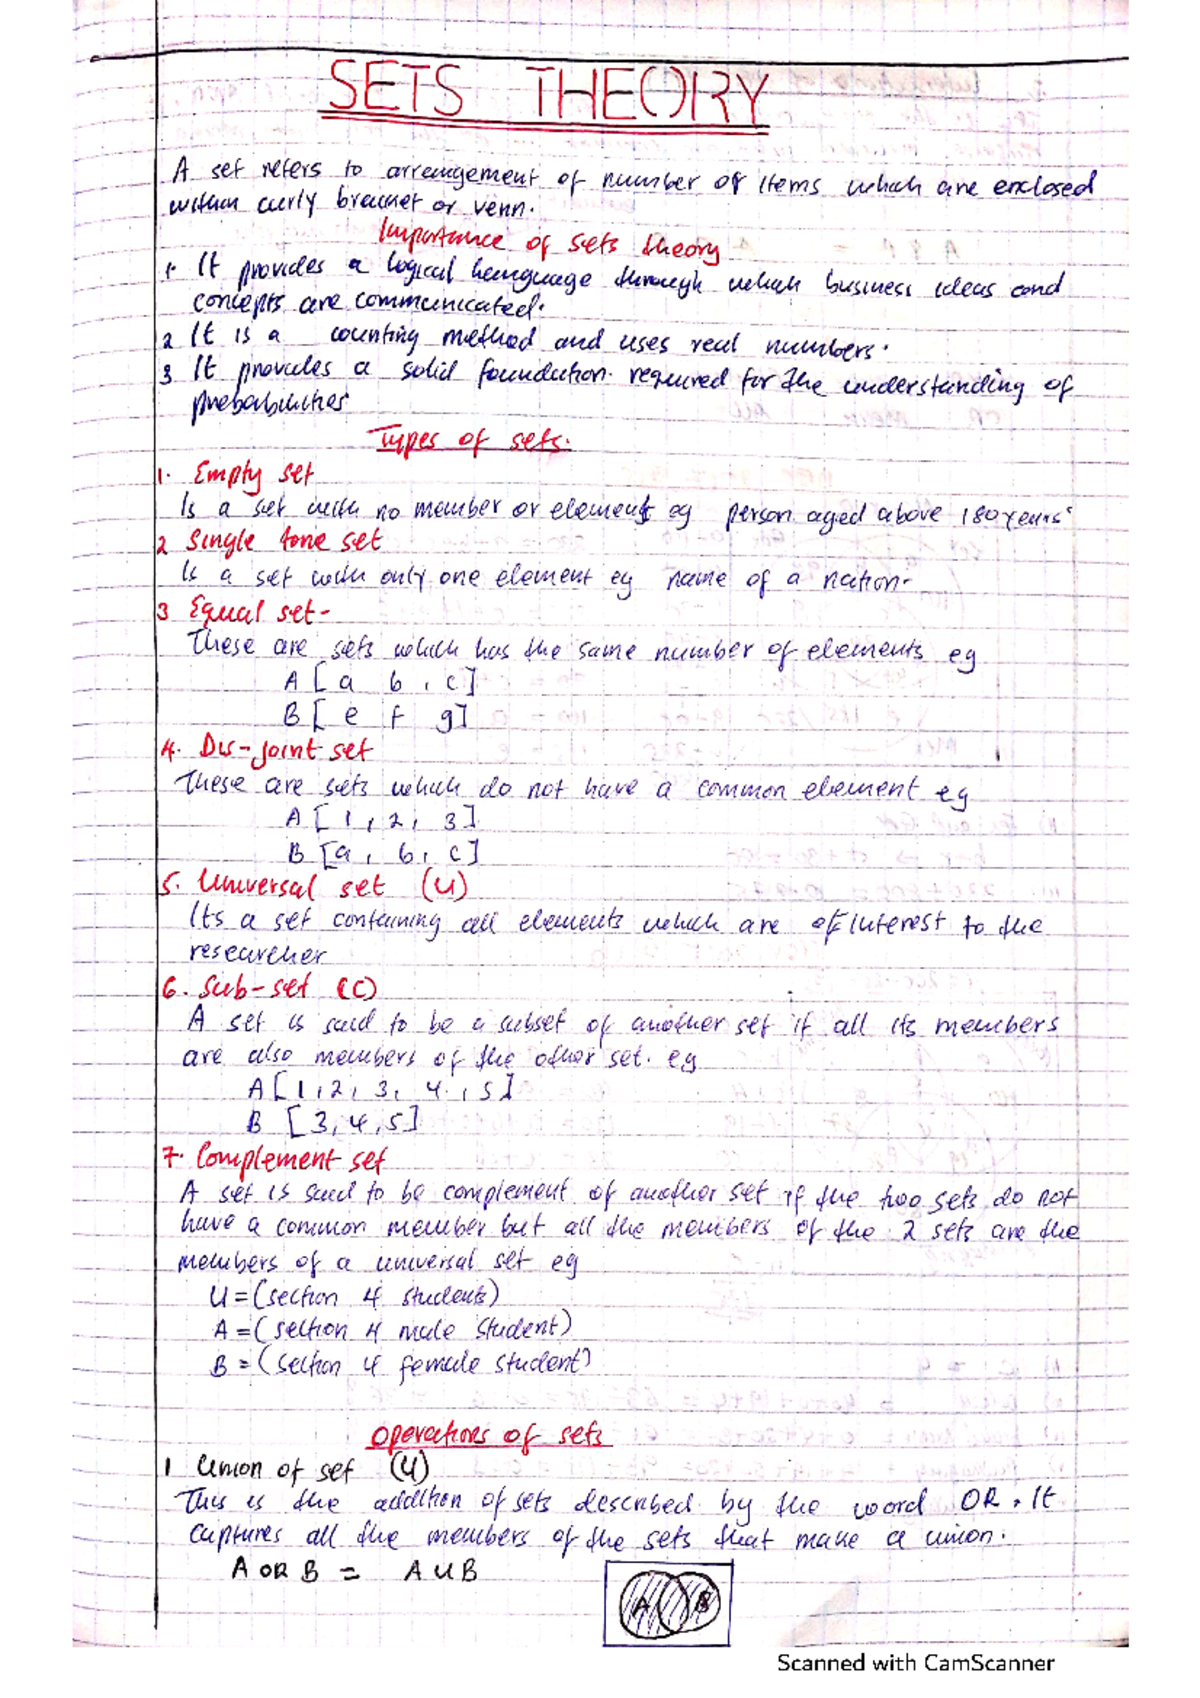 SETS THEORY
A set refers to arrangement of number of items which are enclosed
within curly bracket or venn.
Importance of sets theory
1. It provides a logical language through which business ideas and
concepts are communicated.
2 It is a counting method and uses real numbers.
3 It provides a solid foundation required for the understanding of
probabilities
Types of sets.
1. Empty set
Is a set with no member or element eg person aged above 180 years
2 Single tone set
Is a set with only one element eg name of a nation.
3 Equal set-
These are sets which has the same number of elements eg
A [a b, c]
B [ e f g]
4. Dis-joint set
These are sets which do not have a common element eg
A [1, 2, 3]
B [a, b, c]
5. Universal set (U)
Its a set containing all elements which are of interest to the
researcher
6. Sub-set (C)
A set is said to be a subset of another set if all its members
are also members of the other set. eg
A [1, 2, 3, 4, 5]
B [3, 4, 5]
7. Complement set
A set is said to be complement of another set if the two sets do not
have a common member but all the members of the 2 sets are the
members of a universal set eg
U = (section 4 students)
A = (section 4 male student)
B = (section 4 female student)
Operations of sets
1 Union of set (U)
This is the addition of sets described by the word OR. It
captures all the members of the sets that make a union.
A OR B = A U B
A B
Scanned with CamScanner